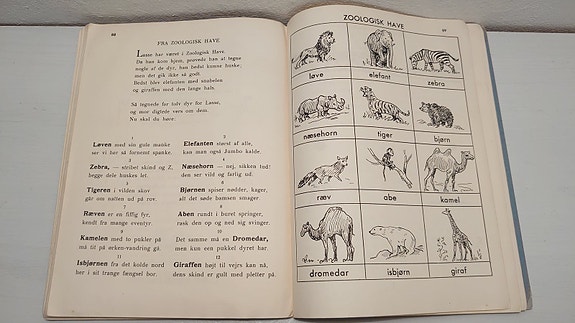 88
FRA ZOOLOGISK HAVE
Lasse har været i Zoologisk Have.
Da han kom hjem, prøved han at tegne
nogle af de dyr, han bedst kunne huske,
men det gik ikke så godt.
Bedst blev elefanten med snabelen
og giraffen med den lange hals.
Så tegnede far tolv dyr for Lasse,
og mor digtede vers om dem.
Nu skal du høre:
1
Løven med sin gule manke
ser vi her så fornemt spanke.
2
Elefanten størst af alle,
kan man også Jumbo kalde.
3
Zebra, — stribet skind og Z,
begge dele huskes let.
4
Næsehorn — nej, sikken lud!
den ser vild og farlig ud.
5
Tigeren i vilden skov
går om natten ud på rov.
6
Bjørnen spiser nødder, kager,
alt det søde bamsen smager
7
Ræven er en fiffig fyr,
kendt fra mange eventyr.
8
Aben rundt i buret springer,
rask den op og ned sig svinger.
9
Kamelen med to pukler på
må tit på ørken-vandring gå.
10
Det samme må en Dromedar,
men kun een pukkel dyret har.
11
Isbjørnen fra det kolde nord
her i sit trange fængsel bor.
12
Giraffen højt til vejrs kan nå,
dens skind er gult med pletter på.
ZOOLOGISK HAVE
89
løve
elefant
zebra
næsehorn
tiger
bjørn
ræv
abe
kamel
dromedar
isbjørn
giraf